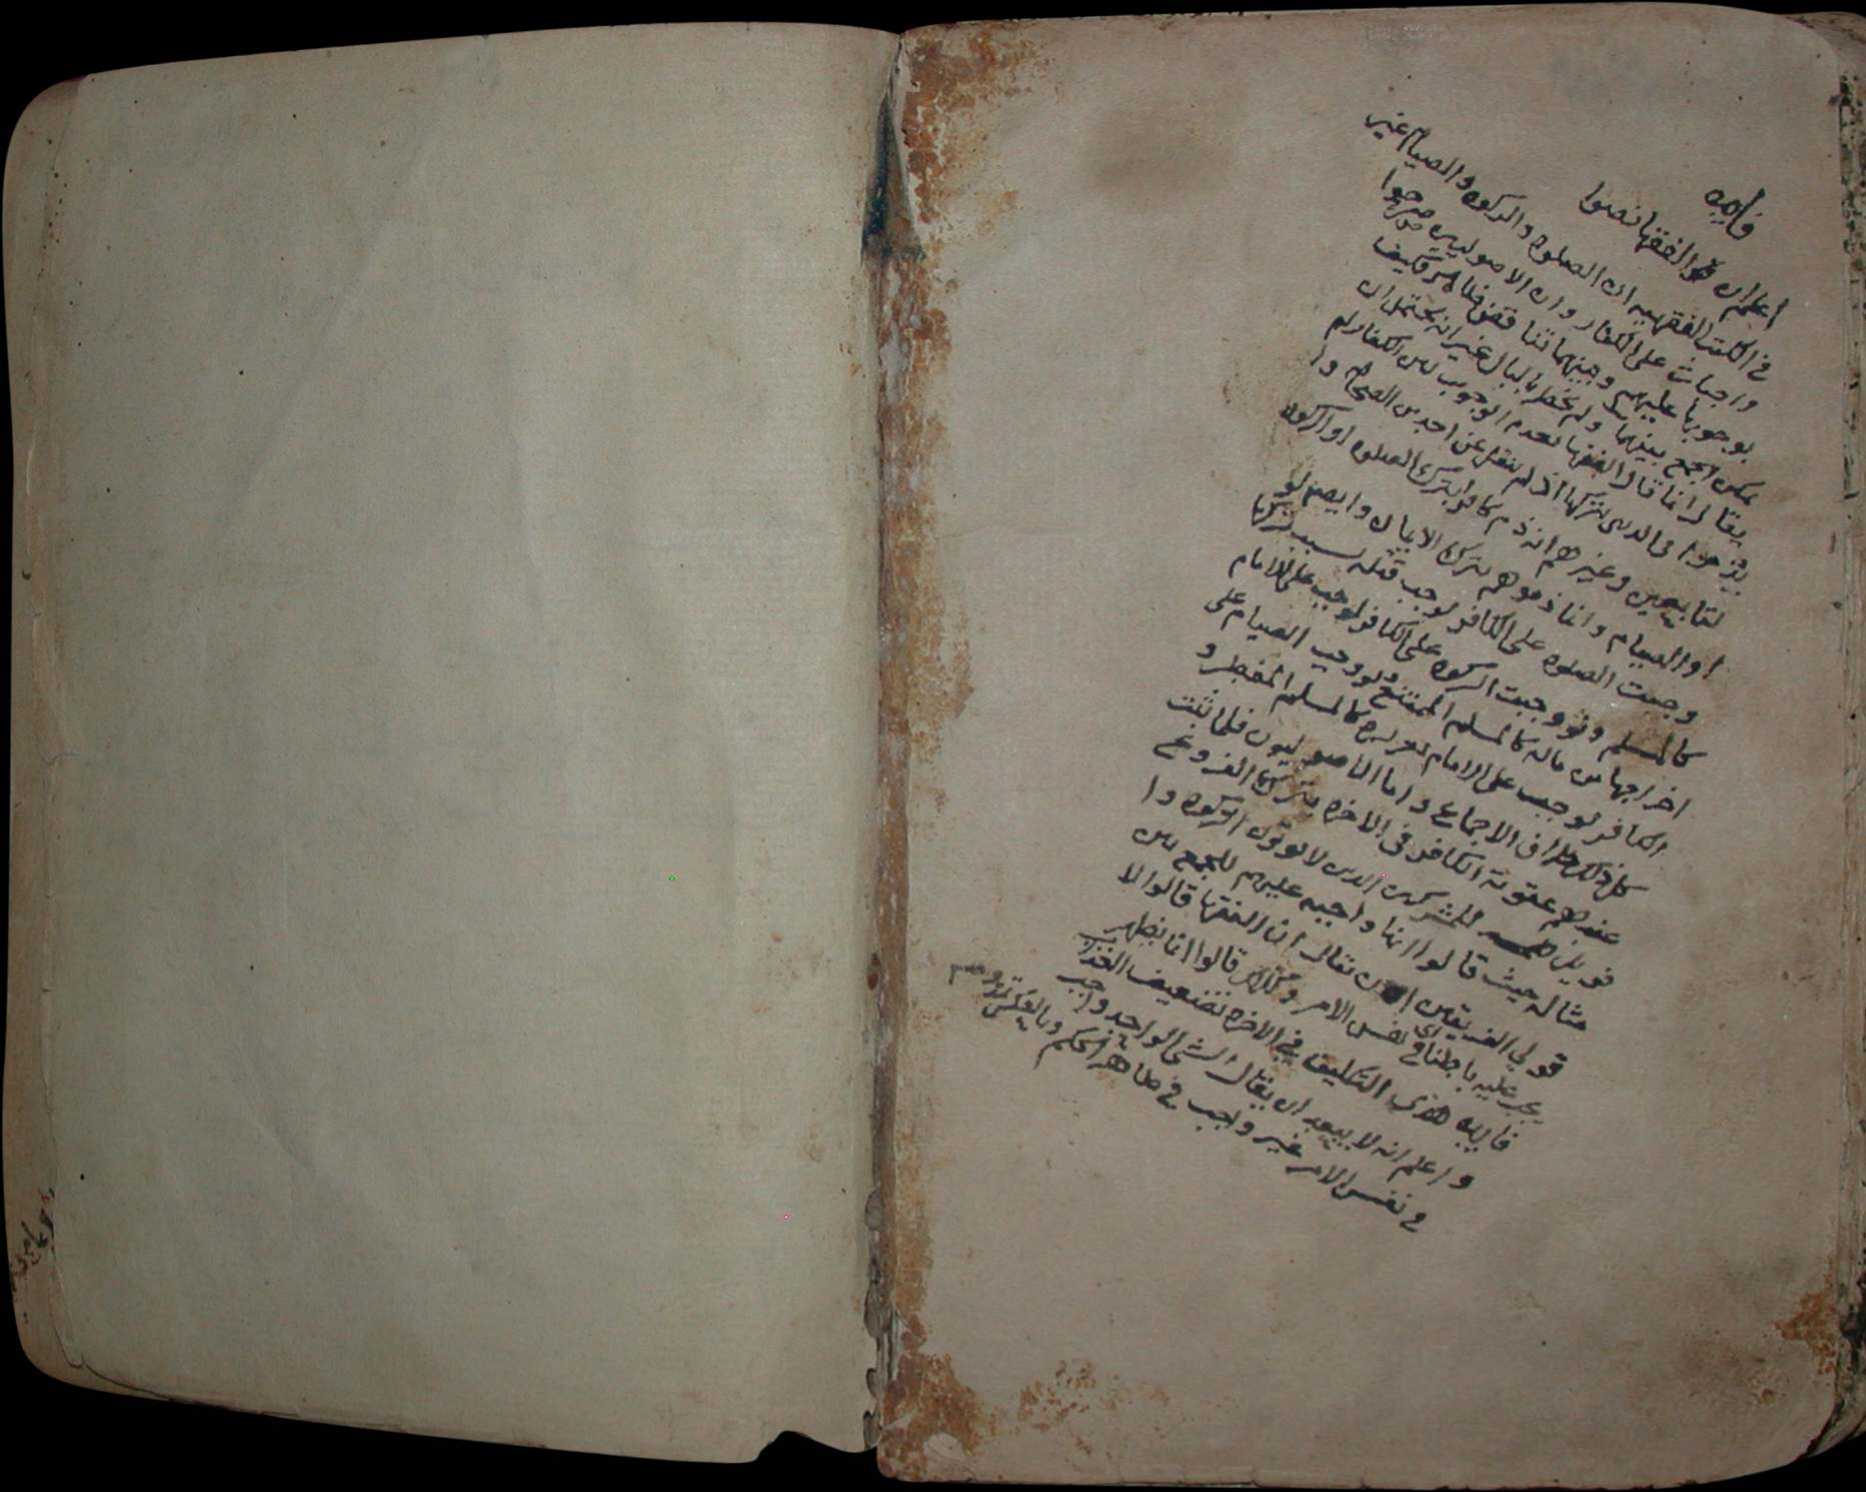 فايده
اعلم ان الفقها نصوا
في الكتب الفقهيه ان الصلوه والزكوه والصيام غير
واجبات على الكفار وان الاصوليين صرحوا
بوجوبها عليهم وبينهما تناقض ظاهر فكيف
يمكن الجمع بينهما ولم يخطر بالبال غير انه يحتمل ان
يقال انما قال الفقها بعدم الوجوب لان الكفار لم
في الدنيا بتركها اذ لم ينقل عن احد من الصحابه وا
لتابعين وغيرهم انه ذم كافرا بترك الصلوه او الزكوه
او الصيام وانما ذموهم بترك الايمان وايضا لو
وجبت الصلوه على الكافر لوجب قتله بسبب تركها
كالمسلم ولو وجبت الزكوه على الكافر لوجب على الامام
اخراجها من ماله كالمسلم الممتنع ولو وجب الصيام على
الكافر لوجب على الامام تعزيره كالمسلم المفطر و
كل ذلك خلاف الاجماع واما الاصوليون فلما ثبت
عندهم عقوبة الكافر في الاخره بترك الفروع
فويل للمشركين الذين لا يوتون الزكوه وا
مثاله حيث قالوا انها واجبه عليهم للجمع بين
قولي الفريقين ان يقال ان الفقها قالوا لا
يجب عليه باطنا اي في نفس الامر قالوا انما يظهر
فايده هذي التكليف في الاخره بتضعيف العذاب
واعلم انه لا يبعد ان يقال الشي الواحد واجب
في نفس الامر غير واجب في ظاهر الحكم وبالعكس